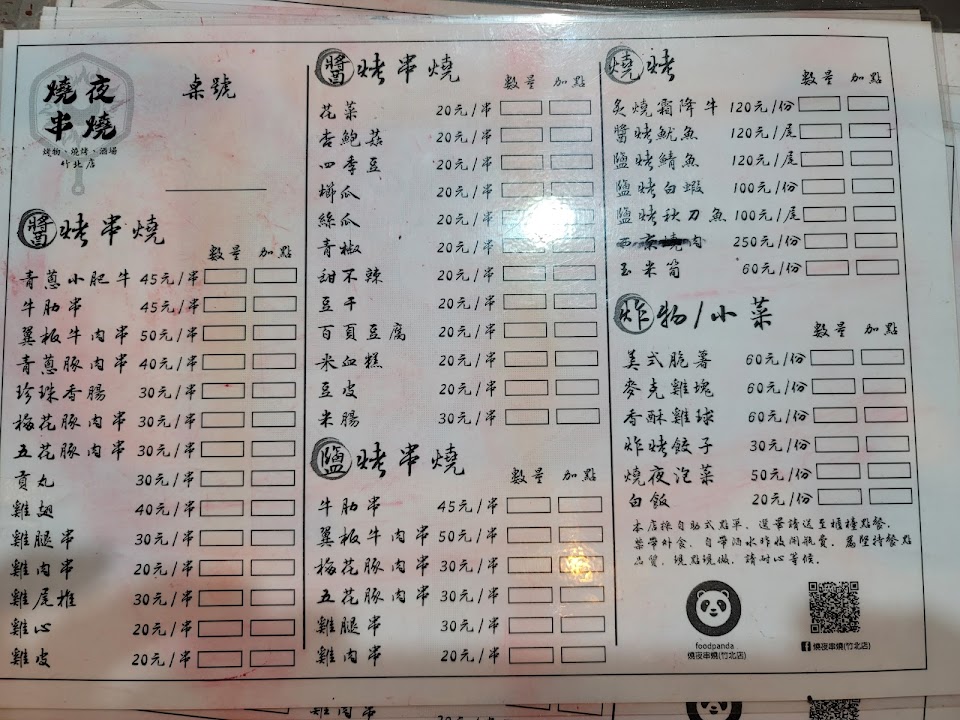 燒夜
串燒
烤物、燒烤、酒場
竹北店
桌號
醬烤串燒
數量 加點
青蔥小肥牛 45元/串
牛肋串 45元/串
翼板牛肉串 50元/串
青蔥豚肉串 40元/串
珍珠香腸 30元/串
梅花豚肉串 30元/串
五花豚肉串 30元/串
貢丸 30元/串
雞翅 40元/串
雞腿串 30元/串
雞肉串 20元/串
雞尾椎 30元/串
雞心 20元/串
雞皮 20元/串
醬烤串燒
數量 加點
花菜 20元/串
杏鮑菇 20元/串
四季豆 20元/串
櫛瓜 20元/串
絲瓜 20元/串
青椒 20元/串
甜不辣 20元/串
豆干 20元/串
百頁豆腐 20元/串
米血糕 20元/串
豆皮 20元/串
米腸 30元/串
鹽烤串燒
數量 加點
牛肋串 45元/串
翼板牛肉串 50元/串
梅花豚肉串 30元/串
五花豚肉串 30元/串
雞腿串 30元/串
雞肉串 20元/串
燒烤
數量 加點
炙燒霜降牛 120元/份
醬烤魷魚 120元/尾
鹽烤鯖魚 120元/尾
鹽烤白蝦 100元/份
鹽烤秋刀魚 100元/尾
燒肉 250元/份
玉米筍 60元/份
炸物/小菜
數量 加點
美式脆薯 60元/份
麥克雞塊 60元/份
香酥雞球 60元/份
炸烤餃子 30元/份
燒夜泡菜 50元/份
白飯 20元/份
本店採自助式點單，選畢請送至櫃檯點餐，
禁帶外食，自帶酒水酌收開瓶費，為堅持餐點
品質，現點現做，請耐心等候。
foodpanda
燒夜串燒(竹北店)
f 燒夜串燒(竹北店)
雞肉串 20元/串